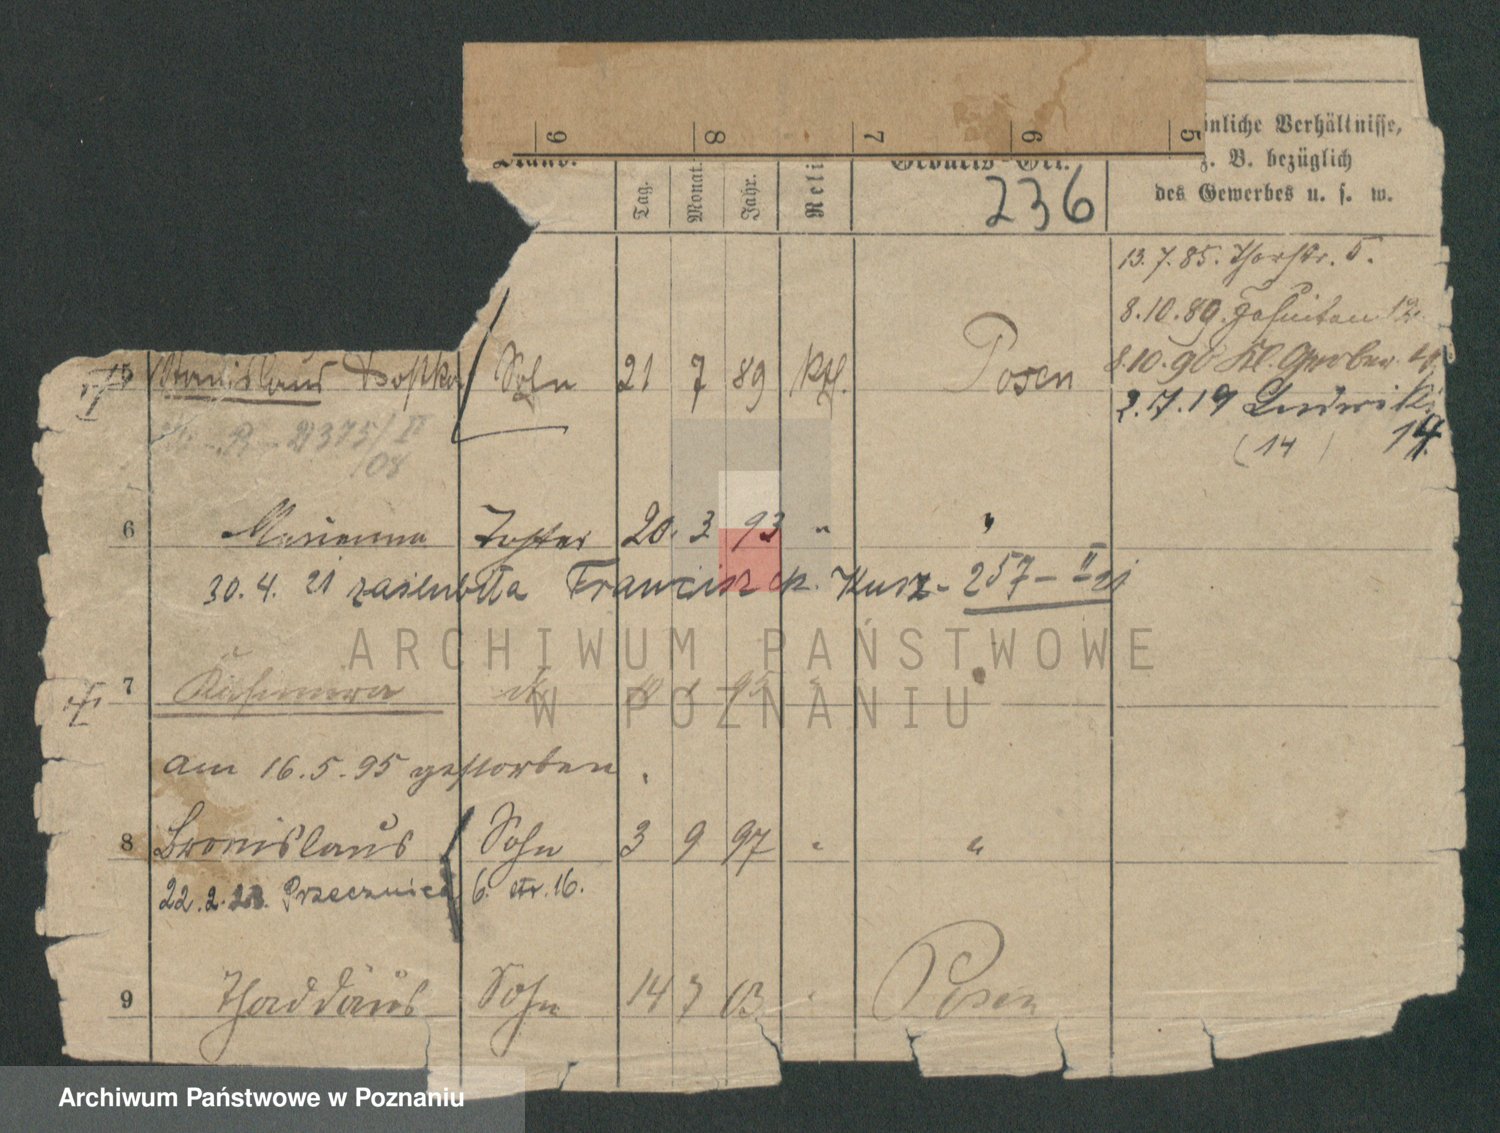 6 8 7 6 5
Stand. Tag. Monat. Jahr. Reli Geburts-Ort. önliche Verhältnisse,
z. B. bezüglich
des Gewerbes u. s. w.
236
13.7.85. Thorstr. 5.
8.10.89. Jesuiten 12.
5 Stanislaus Sohn 21 7 89 kth. Posen 8.10.90 Kl. Gerber
2.7.19 Ludwiki
2375/II (14) 14.
108
6 Marianna Tochter 20. 3 93 " "
30.4.21 zaślubiła Franciszek. Kurz - 257 - II
7 Kasimira
am 16.5.95 gestorben.
8 Bronislaus Sohn 3 9 97 " "
22.2.23. Przecznica 6. str. 16.
9 Thaddäus Sohn 14 7 03 " Posen
ARCHIWUM PAŃSTWOWE
W POZNANIU
Archiwum Państwowe w Poznaniu